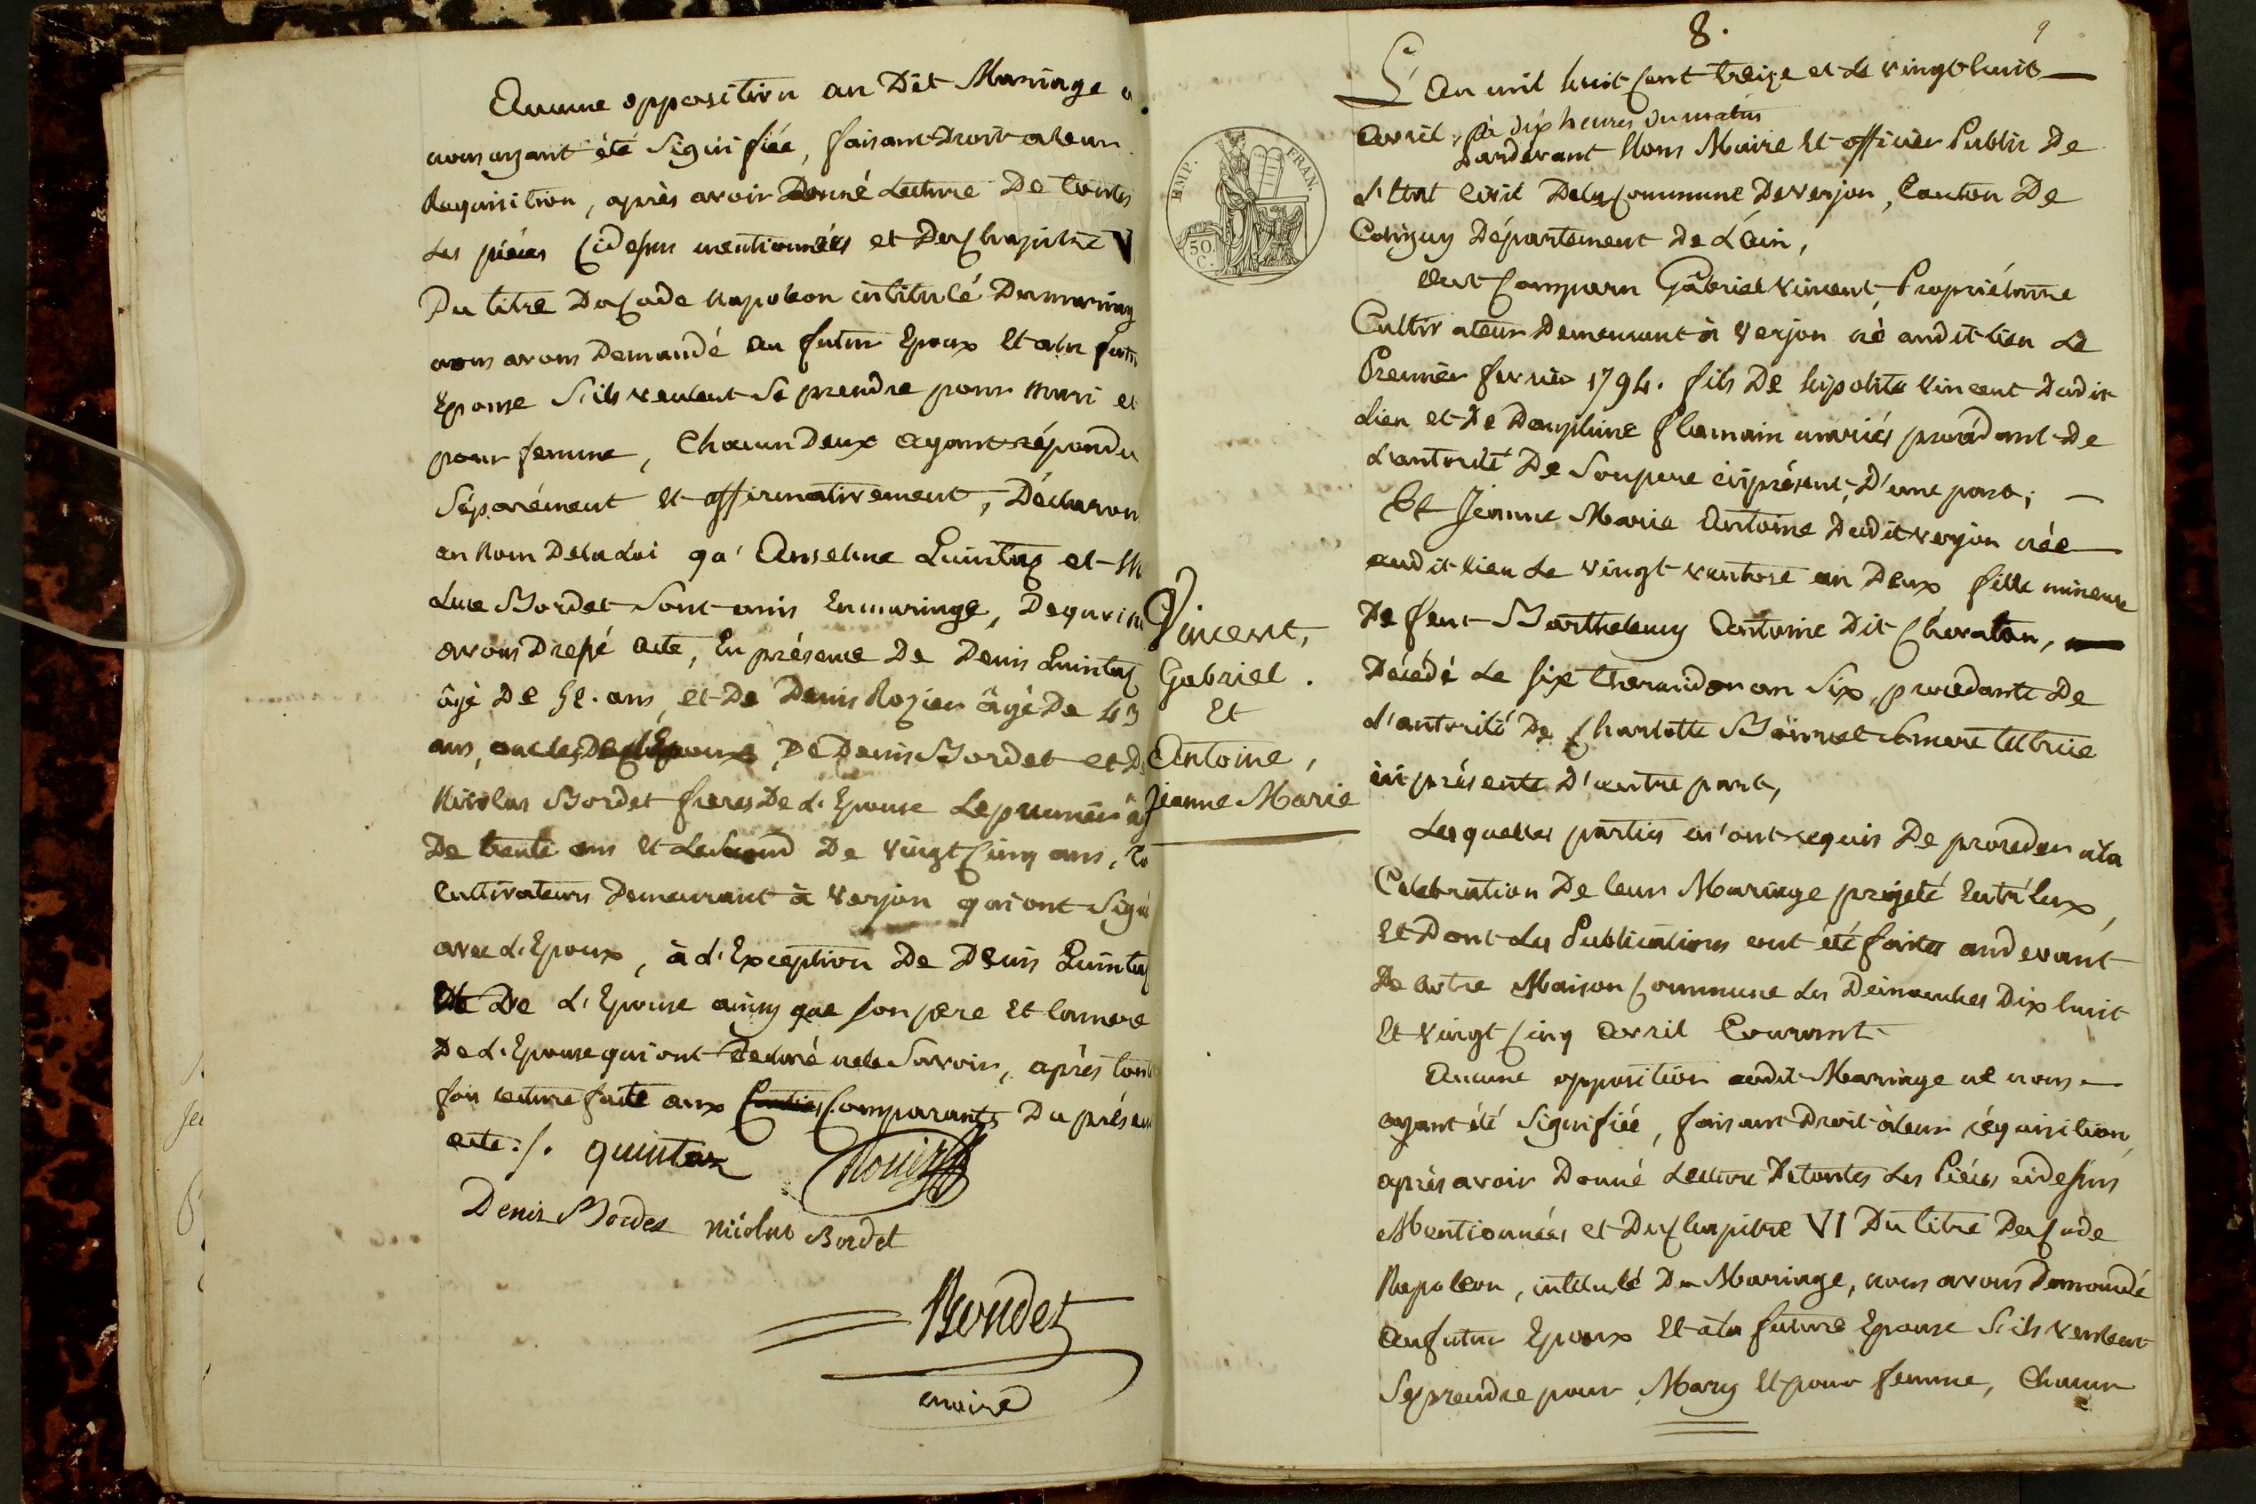 Aucune opposition au Dit Mariage
nous ayant été Signifiée, faisant Droit a leur
Requisition, après avoir Donné Lecture De toutes
les pièces Cidessus mentionnées et Du Chapitre V
Du titre Du Code Napoleon intitulé Du mariag
nous avons Demandé au futur Epoux Et a la futu
Epouse S'ils veulent Se prendre pour Mari et
pour femme, Chacun Deux ayant répondu
Séparément Et affirmativement, Déclarons
au Nom De la Loi qu'Anselme Quintaz et M
Luce Bordet Sont unis En mariage, De quoi
avons Dressé acte, En présence De Denis Quintaz
âgé De 52. ans, et De Denis Rozier âgé De 43
ans, oncles De l'Epoux, De Denis Bordet et D
Nicolas Bordet freres De L'Epouse Le premier âg
De trente ans Et Le Second De vingt Cinq ans, to
Cultivateurs Demeurant à verjon qui ont Signé
avec L'Epoux, à L'Exception De Denis Quintaz
De L'Epouse ainsy que Son pere Et la mere
De L'Epouse qui ont declaré ne le Savoir, après tout
fois lecture faite aux Comparants Du présent
acte :/. quintaz Rozier
Denis Bordet nicolas Bordet
Bondet
maire
8.
9
L'An mil huit Cent treize et Le vingt huit
avril, à dix heures du matin
Pardevant Nous Maire Et officier Public De
L'Etat Civil De la Commune De verjon, Canton De
Coligny Département De L'ain,
EMP. FRAN.
50 C.
Est Comparu Gabriel Vincent, Propriétaire
Cultivateur Demeurant à verjon né audit lieu Le
Premier fevrier 1794. fils De hipolite Vincent Dudit
Lieu et De Dauphine flamain mariés procédant De
L'autorité De Son pere ici présent, D'une part;
Et Jeanne Marie Antoine Dudit verjon née
audit lieu Le vingt ventose an Deux fille mineure
De feu Barthelemy Antoine Dit Chevalon,
Décédé Le Six thermidor an Six, procedante De
L'autorité De Charlotte Sa mere tutrice
ici présente D'autre part,
Vincent,
Gabriel.
Et
Antoine,
Jeanne Marie
Lesquelles parties m'ont requis De proceder a la
Celebration De leur Mariage projeté Entr'Eux,
Et Dont Les Publications ont été faites au devant
De notre Maison Commune Les Dimanches Dix huit
Et vingt Cinq avril Courant.
Aucune opposition audit Mariage ne nous
ayant été Signifiée, faisant Droit à leur réquisition,
après avoir Donné Lecture De toutes Les Pièces cidessus
Mentionnées et Du Chapitre VI Du titre Du Code
Napoleon, intitulé Du Mariage, nous avons Demandé
au futur Epoux Et à la future Epouse S'ils veulent
Se prendre pour Mary Et pour femme, Chacun